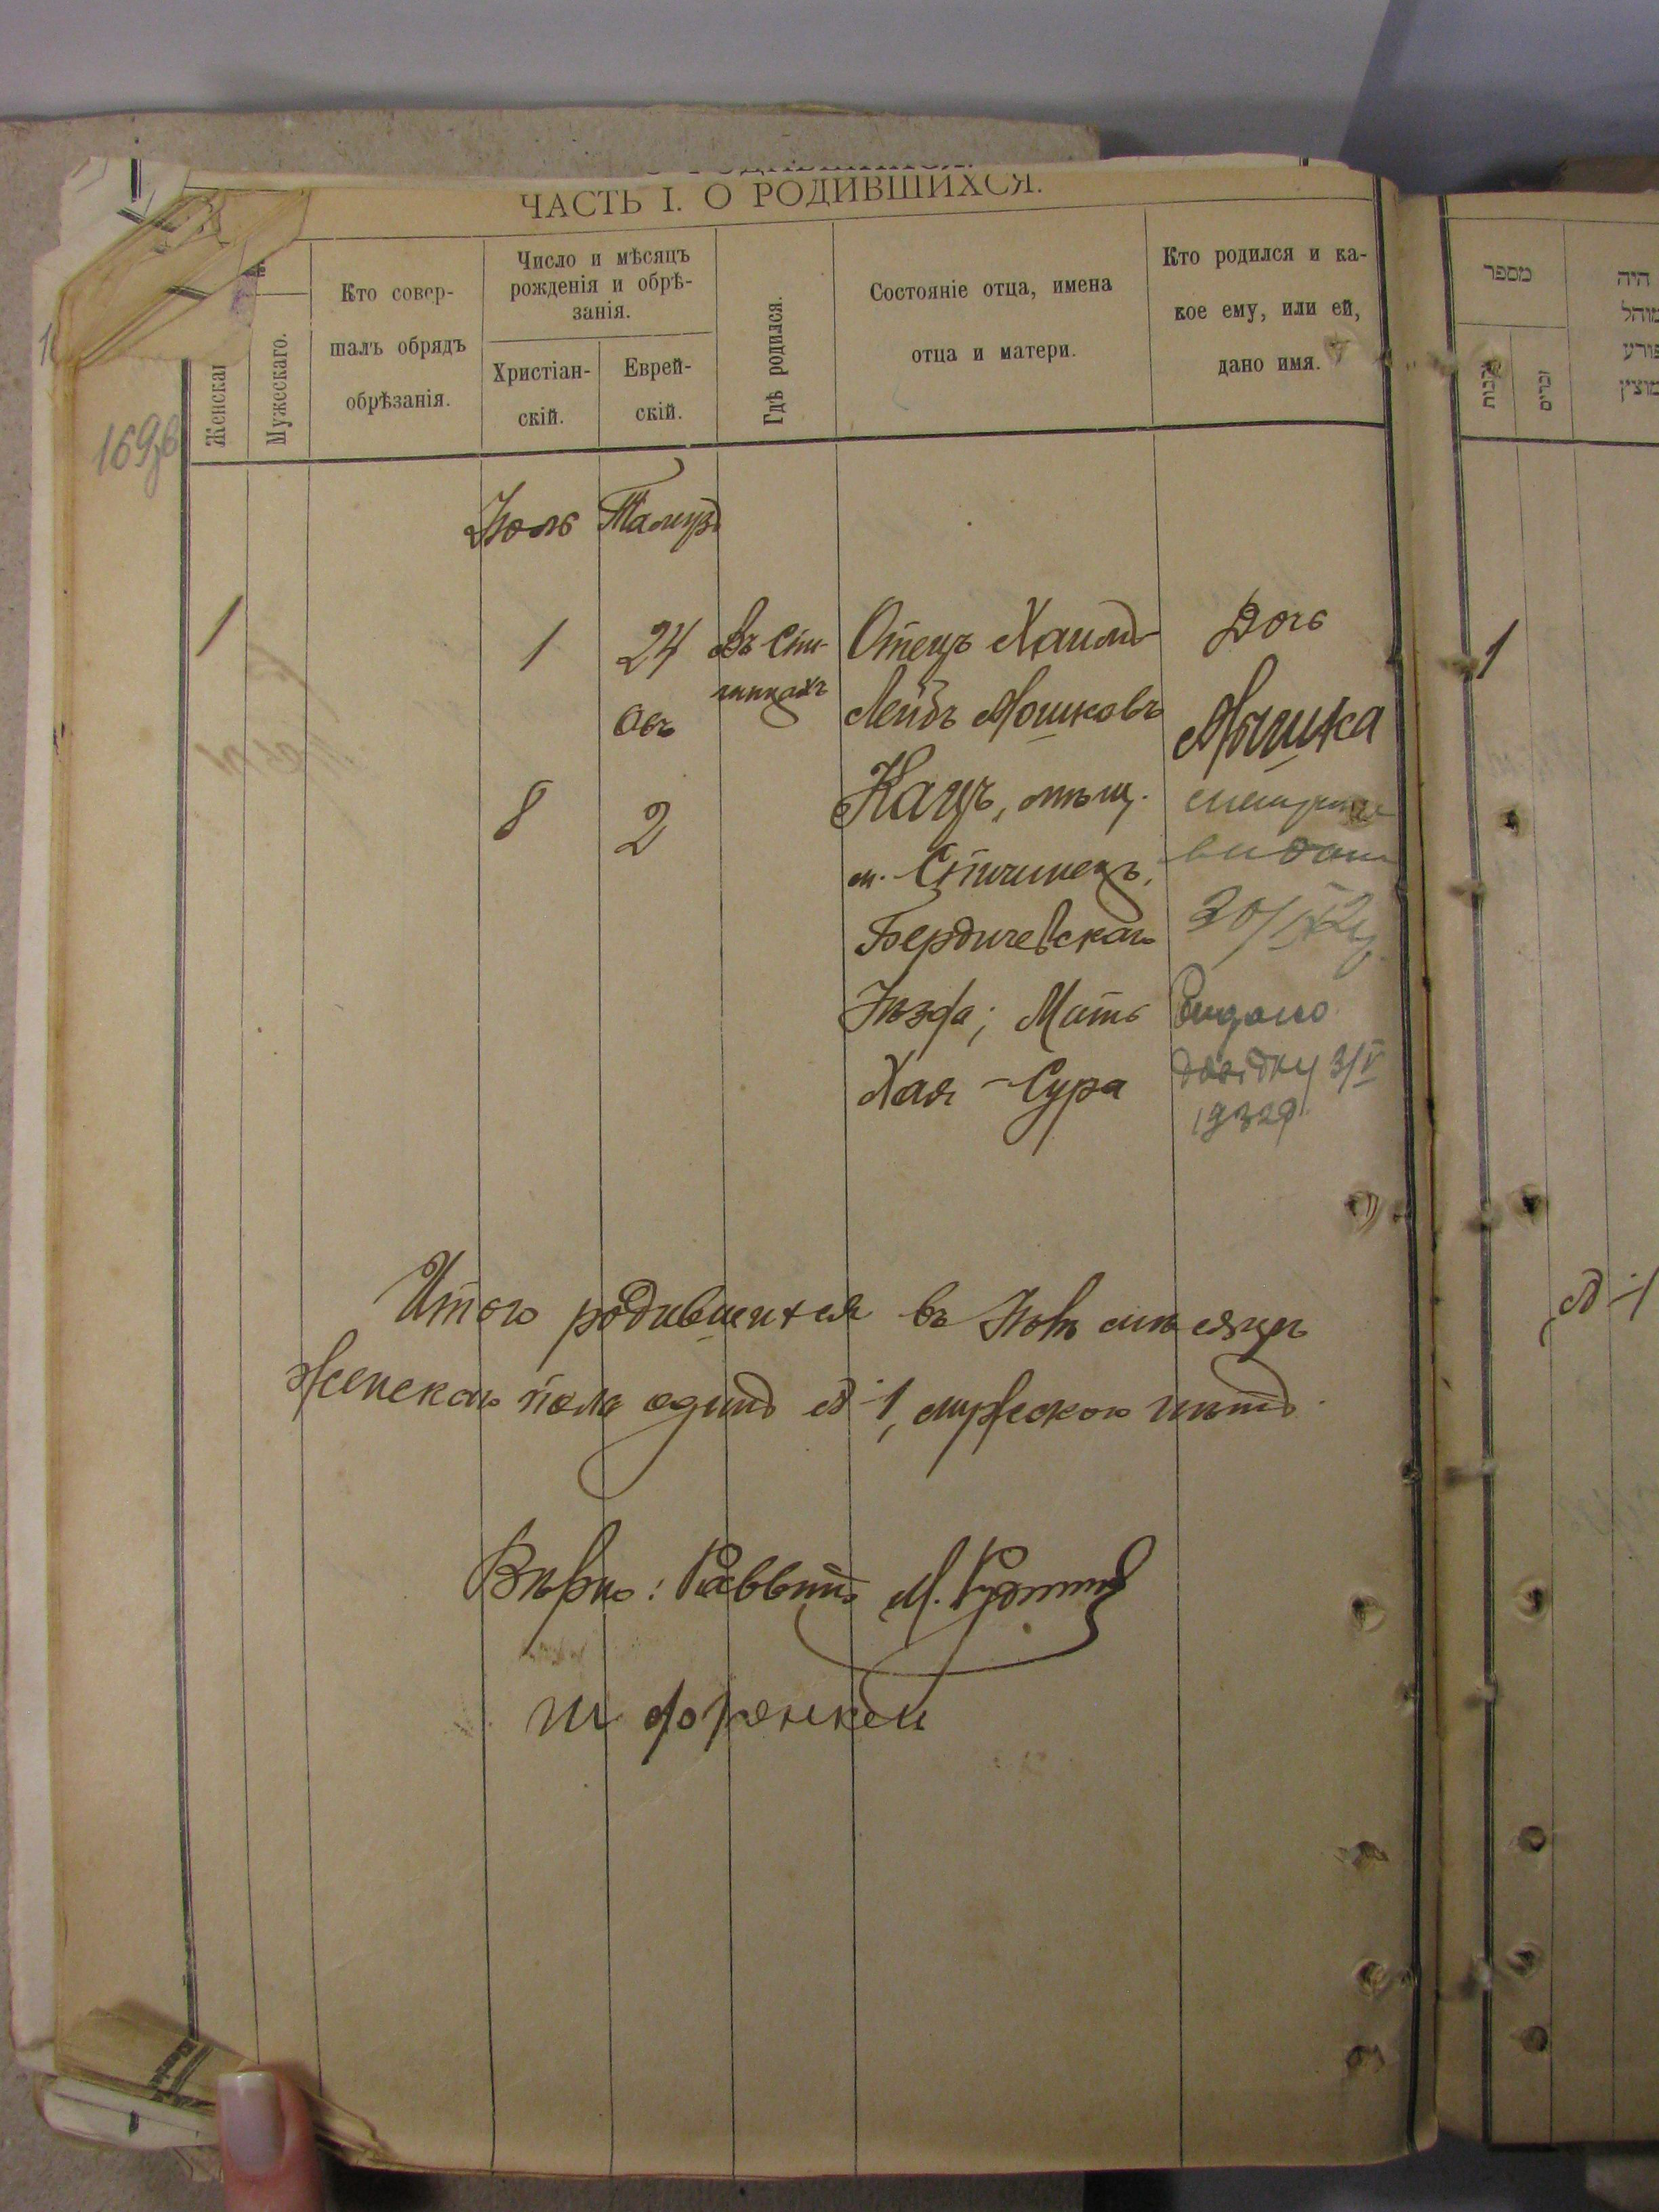 ЧАСТЬ I. О РОДИВШИХСЯ.
Женскаг
Мужескаго.
Кто совер-
шалъ обрядъ
обрѣзанія.
Число и мѣсяцъ
рожденія и обрѣ-
занія.
Христіан-
скій.
Еврей-
скій.
Гдѣ родился.
Состояніе отца, имена
отца и матери.
Кто родился и ка-
кое ему, или ей,
дано имя.
169
Іюль Тамузъ
1
1
24
Овъ
8
2
Отецъ Хаимъ
Лейбъ Мошковъ
Кацъ, мѣщ.
м.
Бердичевскаго
уѣзда; Мать
Хая-Сура
Дочь
Мышка
видан
Видано
довідку 3/V
Итого родившихся въ Іюлѣ мѣсяцѣ
женскаго пола одинъ №1, мужского нѣтъ.
Вѣрно: Раввинъ М.
מספר
נקבות
זכרים
היה
מוהל
פורע
מוצץ
1
№1